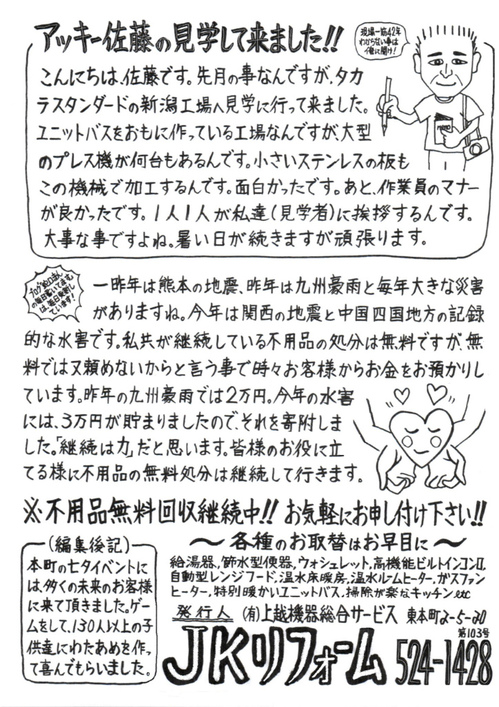 アッキー佐藤の見学して来ました!!
現場一筋42年
わからない事は
俺に聞け!
こんにちは、佐藤です。先月の事なんですが、タカ
ラスタンダードの新潟工場へ見学に行って来ました。
ユニットバスをおもに作っている工場なんですが、大型
のプレス機が何台もあるんです。小さいステンレスの板も
この機械で加工するんです。面白かったです。あと、作業員のマナー
が良かったです。1人1人が私達(見学者)に挨拶するんです。
大事な事ですよね。暑い日が続きますが頑張ります。
一昨年は熊本の地震、昨年は九州豪雨と毎年大きな災害
がありますね。今年は関西の地震と中国四国地方の記録
的な水害です。私共が継続している不用品の処分は無料ですが、無
料では又頼めないからと言う事で時々お客様からお金をお預かりし
ています。昨年の九州豪雨では2万円。今年の水害
には、3万円が貯まりましたので、それを寄附しま
した。「継続は力」だと思います。皆様のお役に立
てる様に不用品の無料処分は継続して行きます。
※不用品無料回収継続中!! お気軽にお申し付け下さい!!
(編集後記)
本町の七夕イベントに
は、多くの未来のお客様
に来て頂きました。ゲー
ムをして、130人以上の子
供達にわたあめを作っ
て喜んでもらいました。
〜各種のお取替はお早目に〜
給湯器、節水型便器、ウォシュレット、高機能ビルトインコンロ、
自動型レンジフード、温水床暖房、温水ルームヒーター、ガスファン
ヒーター、特別暖かいユニットバス、掃除が楽なキッチンetc
発行人 (有)上越機器総合サービス 東本町2-5-20
第103号
JKリフォーム 524-1428